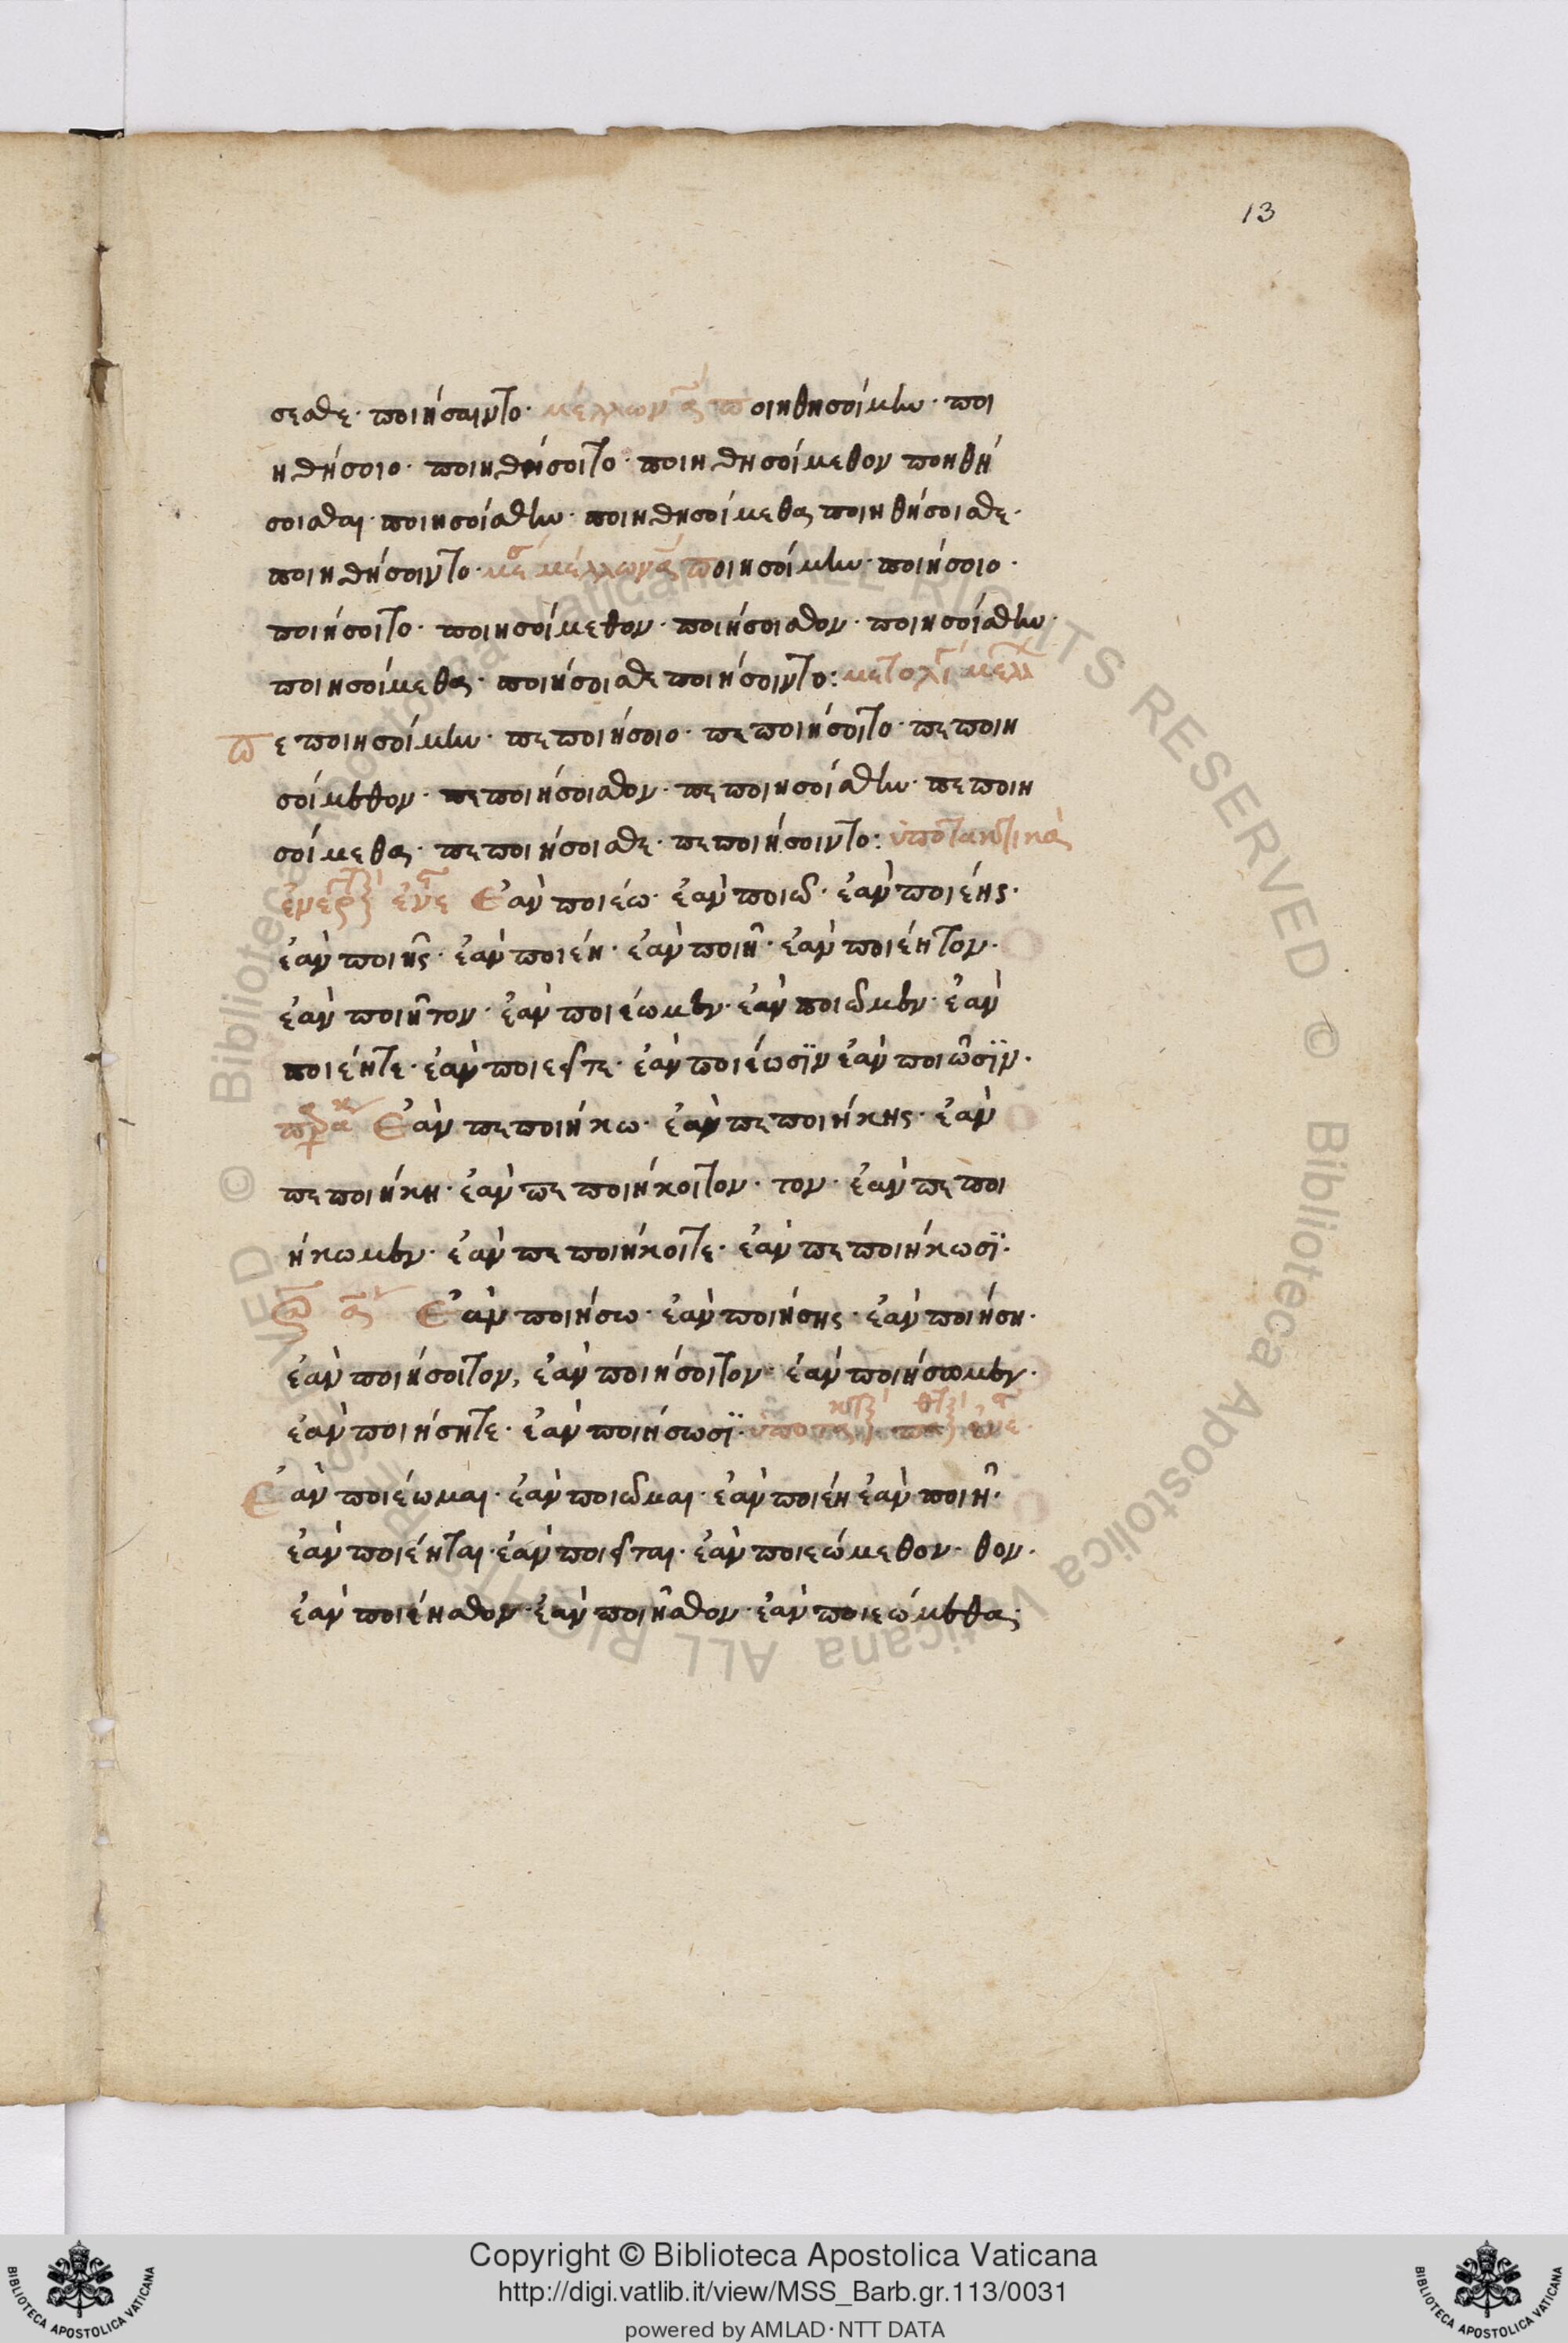 13
σεσθε· ποιήσαιντο· μέλλων ποιηθησοίμην· ποι
ηθήσοιο· ποιηθήσοιτο· ποιηθησοίμεθον ποηθή
σοισθαι· ποιησοίσθην· ποιηθησοίμεθα ποιηθήσοισθε·
ποιηθήσοιντο· ποιησοίμην· ποιήσοιο·
ποιήσοιτο· ποιησοίμεθον· ποιήσοισθον· ποιησοίσθην·
ποιησοίμεθα· ποιήσοισθε ποιήσοιντο:
πεποιησοίμην· πεποιήσοιο· πεποιήσοιτο· πεποιη
σοίμεθον· πεποιήσοισθον· πεποιησοίσθην· πεποιη
σοίμεθα· πεποιήσοισθε· πεποιήσοιντο: ὑποτακτικὰ
Ἐὰν ποιέω· ἐὰν ποιῶ· ἐὰν ποιέῃς·
ἐὰν ποιῆς· ἐὰν ποιέη· ἐὰν ποιῆ· ἐὰν ποιέητον·
ἐὰν ποιῆτον· ἐὰν ποιέωμεν· ἐὰν ποιῶμεν· ἐὰν
ποιέητε· ἐὰν ποιεῖτε· ἐὰν ποιέωσϊν ἐὰν ποιῶσϊν·
Ἐὰν πεποιήκω· ἐὰν πεποιήκης· ἐὰν
πεποιήκη· ἐὰν πεποιήκοιτον· τον· ἐὰν πεποι
ήκωμεν· ἐὰν πεποιήκοιτε· ἐὰν πεποιήκωσϊ·
Ἐὰν ποιήσω· ἐὰν ποιήσης· ἐὰν ποιήση·
ἐὰν ποιήσοιτον, ἐὰν ποιήσοιτον· ἐὰν ποιήσωμεν·
ἐὰν ποιήσητε· ἐὰν ποιήσωσϊ·
Ἐὰν ποιέωμαι· ἐὰν ποιῶμαι· ἐὰν ποιέη ἐὰν ποιῆ·
ἐὰν ποιέηται· ἐὰν ποιεῖται· ἐὰν ποιεώμεθον· θον·
ἐὰν ποιέησθον· ἐὰν ποιῆσθον· ἐὰν ποιεώμεθα·
Copyright © Biblioteca Apostolica Vaticana
http://digi.vatlib.it/view/MSS_Barb.gr.113/0031
powered by AMLAD · NTT DATA